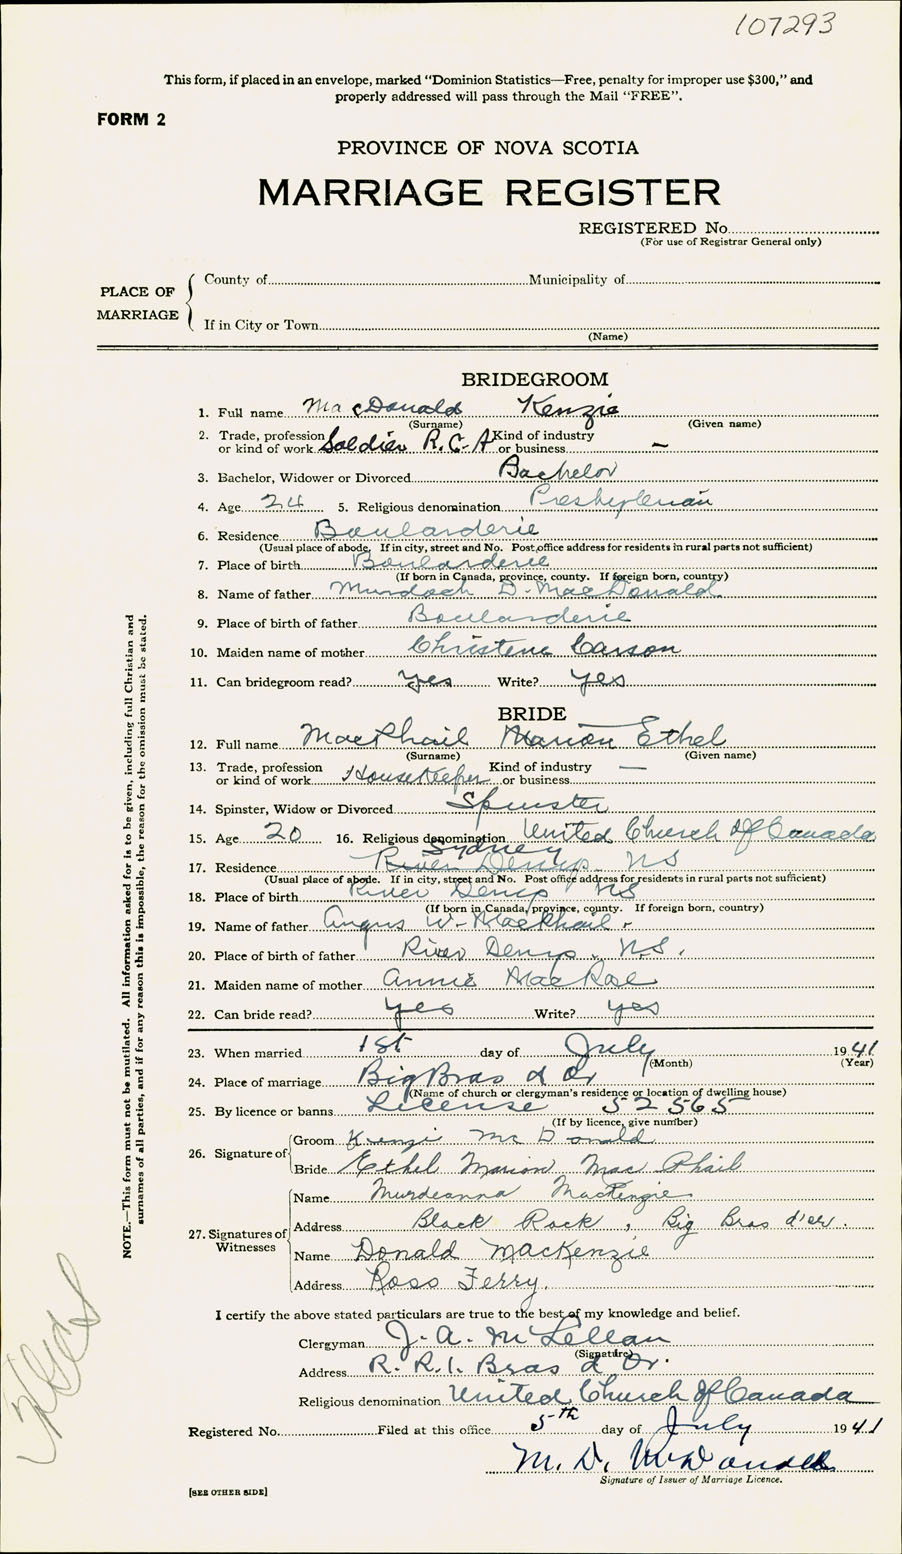 107293
This form, if placed in an envelope, marked "Dominion Statistics—Free, penalty for improper use $300," and
properly addressed will pass through the Mail "FREE".
FORM 2
PROVINCE OF NOVA SCOTIA
MARRIAGE REGISTER
REGISTERED No.
(For use of Registrar General only)
PLACE OF MARRIAGE
County of Municipality of
If in City or Town
(Name)
BRIDEGROOM
1. Full name MacDonald Kenzie
(Surname) (Given name)
2. Trade, profession or kind of work Soldier R.C.A Kind of industry or business —
3. Bachelor, Widower or Divorced Bachelor
4. Age 24 5. Religious denomination Presbyterian
6. Residence Boularderie
(Usual place of abode. If in city, street and No. Post office address for residents in rural parts not sufficient)
7. Place of birth Boularderie
(If born in Canada, province, county. If foreign born, country)
8. Name of father Murdoch D. MacDonald
9. Place of birth of father Boularderie
10. Maiden name of mother Christene Carson
11. Can bridegroom read? yes Write? yes
BRIDE
12. Full name MacPhail Marion Ethel
(Surname) (Given name)
13. Trade, profession or kind of work Housekeeper Kind of industry or business —
14. Spinster, Widow or Divorced Spinster
15. Age 20 16. Religious denomination United Church Of Canada
Sydney
17. Residence River Denys NS
(Usual place of abode. If in city, street and No. Post office address for residents in rural parts not sufficient)
18. Place of birth River Denys NS
(If born in Canada, province, county. If foreign born, country)
19. Name of father Angus W. MacPhail.
20. Place of birth of father River Denys, N.S.
21. Maiden name of mother Annie MacRae
22. Can bride read? yes Write? yes
23. When married 1st day of July 1941
(Month) (Year)
24. Place of marriage Big Bras d Or
(Name of church or clergyman's residence or location of dwelling house)
25. By licence or banns License 52565
(If by licence, give number)
26. Signature of
Groom Kenzi McDonald
Bride Ethel Marion MacPhail
27. Signatures of Witnesses
Name Murdeanna MacKenzie
Address Black Rock, Big Bras d'or.
Name Donald MacKenzie
Address Ross Ferry.
I certify the above stated particulars are true to the best of my knowledge and belief.
Clergyman J. A. McLellan
(Signature)
Address R. R. 1. Bras d'Or.
Religious denomination United Church Of Canada
Registered No. Filed at this office 5th day of July 1941
M. D. McDonald
Signature of Issuer of Marriage Licence.
[SEE OTHER SIDE]
NOTE.—This form must not be mutilated. All information asked for is to be given, including full Christian and
surnames of all parties, and if for any reason this is impossible, the reason for the omission must be stated.